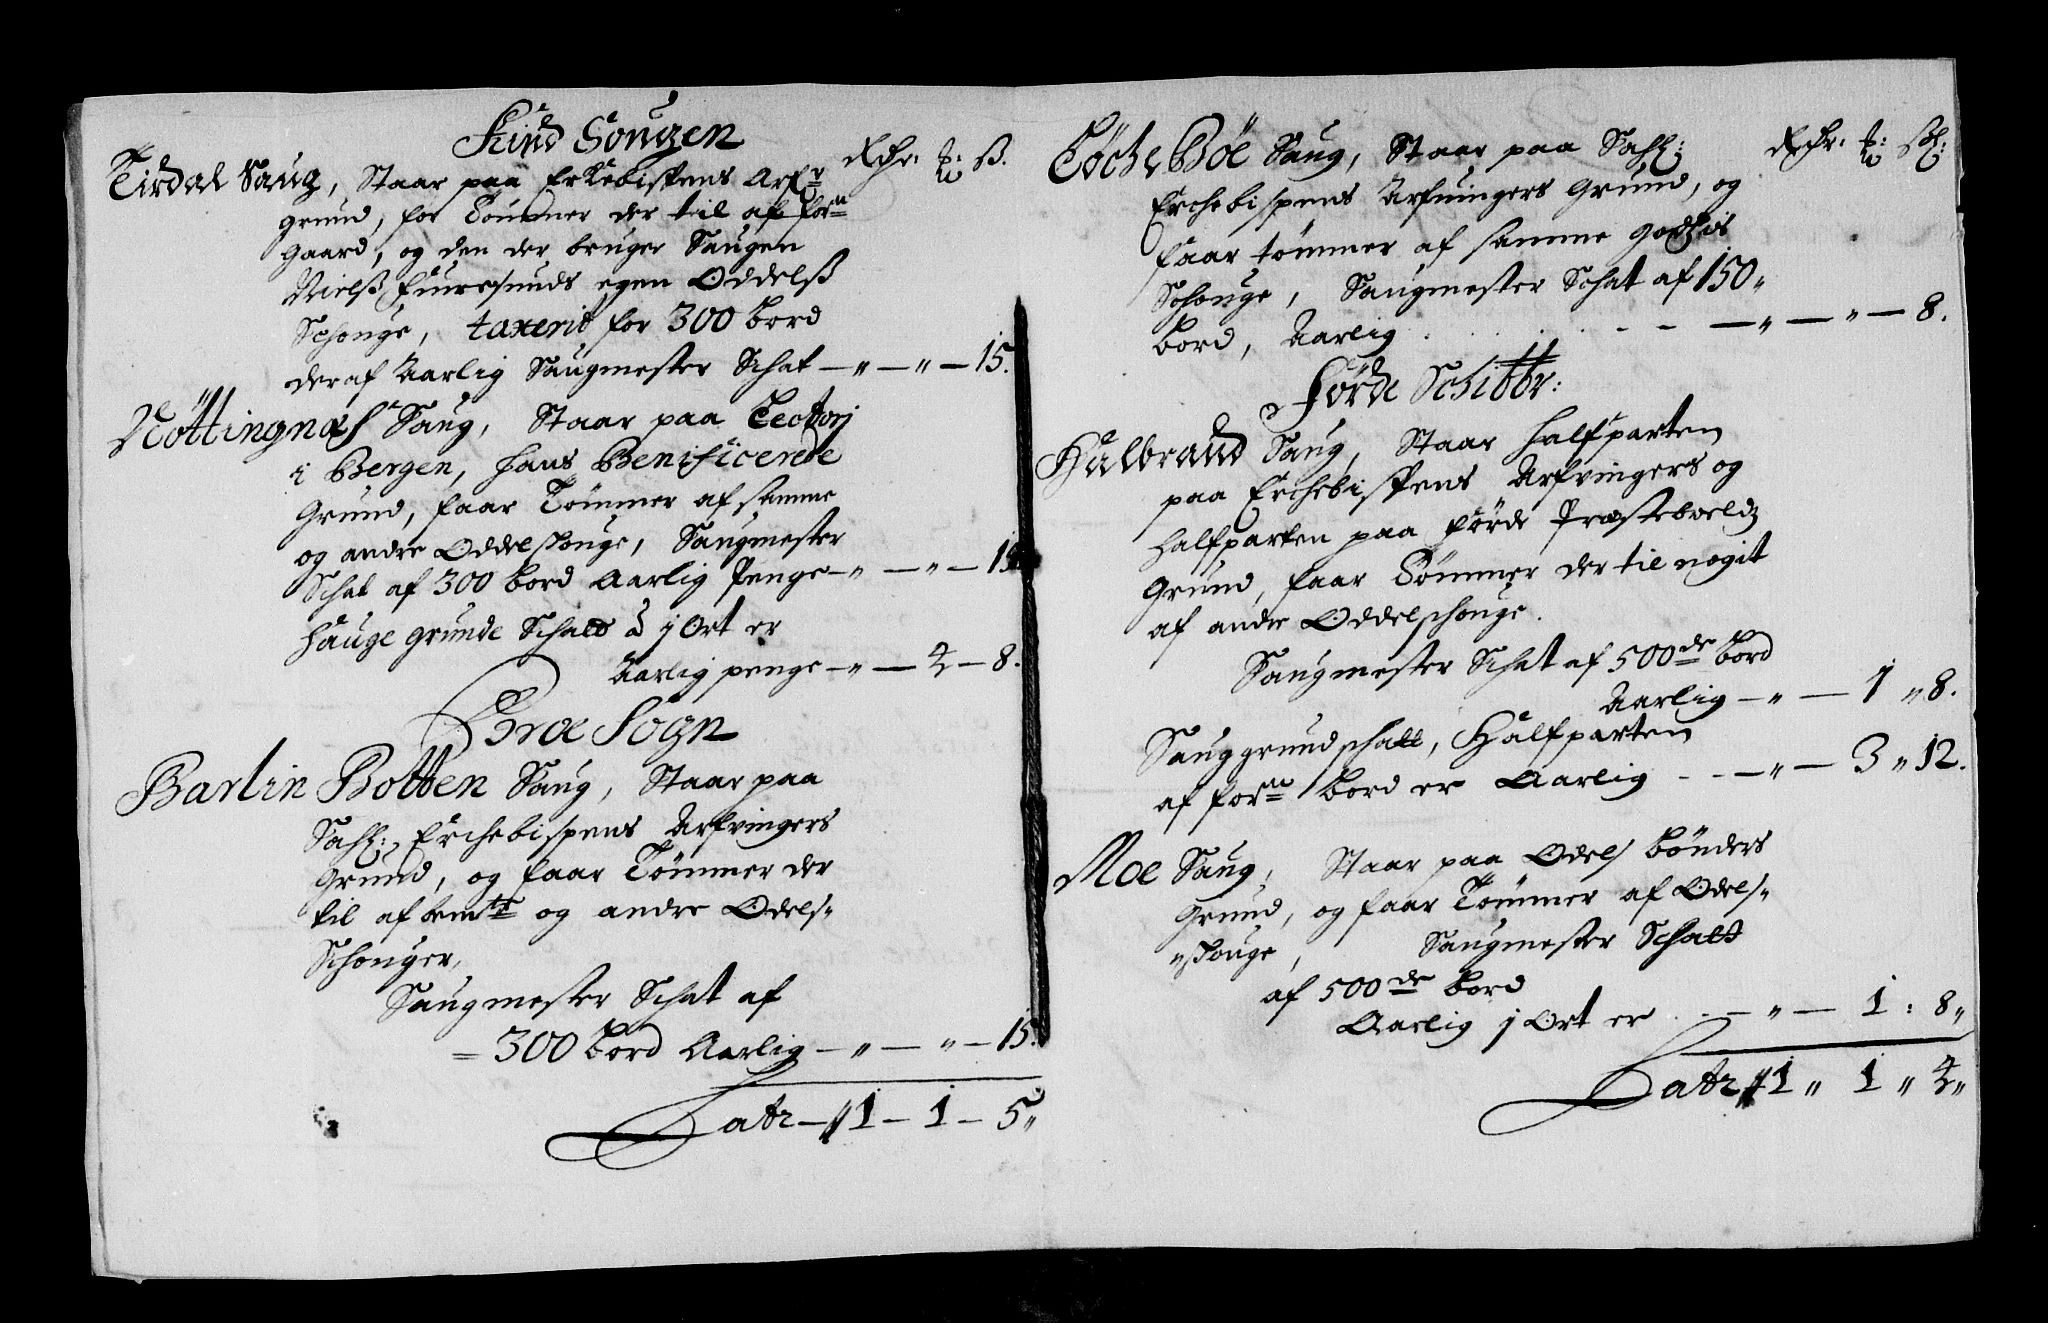 Kind Sougen
Rdr. t: ß.
Tirdal Saug, Staar paa Erkebispens Arf:r
grund, for Tömmer der til af for:ne
gaard, og den der bruger Saugen
Nielß Fuuresunds egen Oddelß
Schouge, taxerit for 300 bord
der af Aarlig Saugmester Schat — " — " — 15.
Nöttingnæs Saug, Staar paa Lectorj
i Bergen, hans Benificerede
Grund, faar Tömmer af samme
og andre Oddelskouge, Saugmester
Schat af 300 bord Aarlig Penge — " — " — 15
Hauge grunde Schatt â j Ort er
Aarlig penge — " — 4 — 8.
Broe Sogn
Barlin Botten Saug, Staar paa
Sahl: Erchebispens Arfvingers
Grund, og faar Tömmer der
til af bem:te og andre Odels-
Schouger,
Saugmester Schat af
= 300 bord Aarlig — " — " — 15.
Latr — // 1 — 1 — 5 "
Rdr. t: ßl:
Töche Böe Saug, Staar paa Sahl:
Erchebispens Arfuingers Grund, og
faar tömmer af samme godtzis
Schouge, Saugmester Schat af 150 "
bord, Aarlig . . . — — — " — " — 8.
Förde Schibbr:
Hulbrand Saug, Staar halfparten
paa Erchebispens Arfvingers og
halfparten paa förde Præsteboeldz
Grund, faar Tömmer der til nogit
af andre Oddelschouge.
Saugmester Schat af 500de bord
Aarlig — " — 1 " 8.
Sauggrundschatt, Halfparten
af for:ne bord er Aarlig - - — " — 3 " 12.
Moe Saug, Staar paa Odels bönders
Grund, og faar Tömmer af Odels-
"skouge, Saugmester Schatt
af 500de bord
Aarlig j Ort er . - — " — 1 : 8 "
Latr // 1 " 1 " 4 "